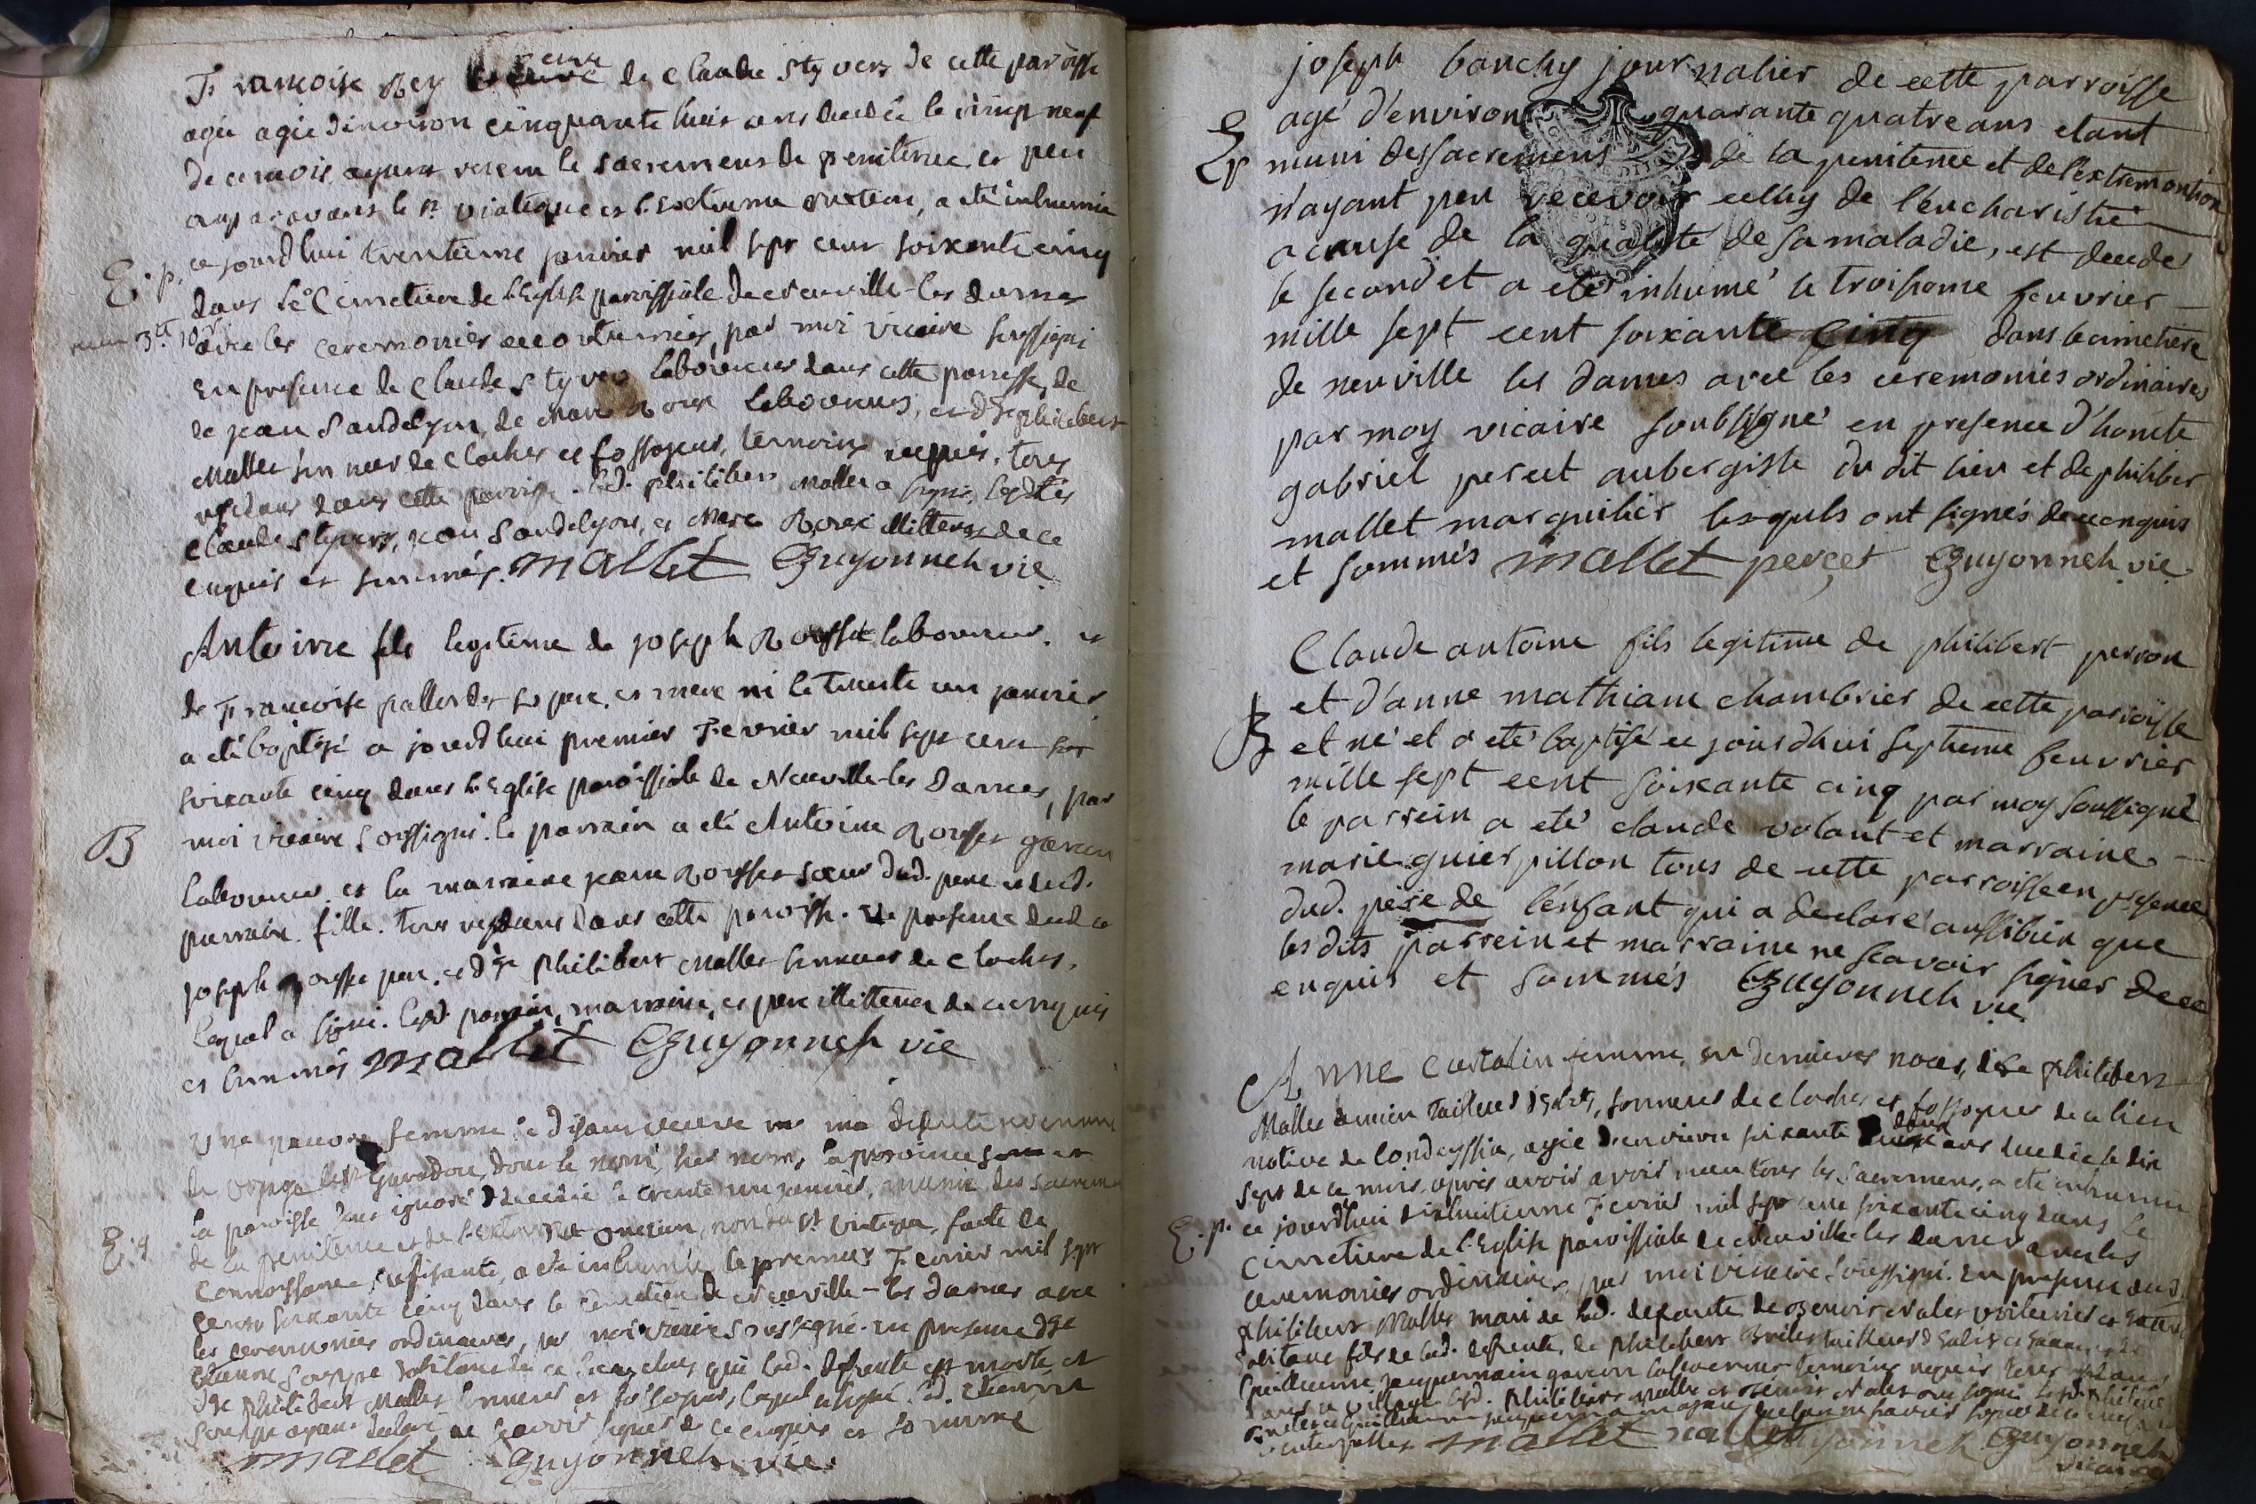 Francoise Rey veuve veuve de Claude Styvers de cette paroisse
agée agée d'environ cinquante huit ans decedée le vingt neuf
de ce mois ayant recu le sacrement de penitence et peu
auparavant le st viatique et l'extreme onction, a été inhumée
E. p. ce jourd'hui trentieme janvier mil sept cent soixante cinq
dans le Cimetiere de l'Eglise paroissiale de neuville-les dames
avec les ceremonies accoutumées, par moi vicaire soussigné
En presence de Claude Styvers laboureur dans cette paroisse, de
de jean Sandelyon, de Marc Roux laboureurs, et de philibert
Mallet sonneur de cloches et fossoyeur, temoins requis, tous
residens dans cette paroisse. led. philibert Mallet a signé, lesdits
Claude Styvers, jean Sandelyon, et Marc Roux illitterés de ce
enquis et sommés. Mallet Guyonneh vic.
Antoine fils legitime de joseph Rousset laboureur. et
de Francoise pallordet ses pere et mere né le trente un janvier
a été baptisé a jourd'hui premier Fevrier mil sept cent soi
soixante cinq dans l'Eglise paroissiale de Neuville-les Dames, par
B moi vicaire soussigné. le parrain a été Antoine Rousset garcon
laboureur et la marraine jeanne Rousset soeur dud. pere et dud.
parrain fille. tous residens dans cette paroisse. En presence dud
joseph Rousset pere. et de philibert Mallet sonneur de cloches,
lequel a signé. lesd. parrain, marraine, et pere illitterés de ce enquis
et sommés Mallet Guyonneh vic
Une pauvre femme se disant veuve
la paroisse sont ignorés decedée le trente un janvier, munie des sacremens
E. p. de la penitence et de l'extreme onction, non du st viatique, faute de
Connoissance suffisante, a été inhumée le premier Fevrier mil sept
cent soixante cinq dans le cimetiere de Neuville-les dames avec
les ceremonies ordinaires, par moi vicaire soussigné. en presence de
Etienne habitant de ce lieu, chez qui lad. defunte est morte, et
de philibert Mallet sonneur et fossoyeur, lequel a signé led. Etienne
ayant declaré ne scavoir signer de ce enquis et sommé
Mallet Guyonneh vic.
joseph banchy journalier de cette parroisse
agé d'environ quarante quatre ans etant
Ep muni des sacremens de la penitence et de l'extremonction
n'ayant peu recevoir celluy de l'eucharistie
a cause de la qualité de sa maladie, est decedé
le second et a eté inhumé le troisieme feuvrier
mille sept cent soixante cinq dans le cimetiere
de neuville les dames avec les ceremonies ordinaires
par moy vicaire soubsigné en presence d'honete
gabriel percet aubergiste du dit lieu et de philiber
mallet marguilier lesquels ont signés de ce enquis
et sommés Mallet perçet Guyonneh vic.
Claude antoine fils legitime de philibert perron
et d'anne mathiam chambrier de cette parroisse
B et né et a eté baptisé ce jourd'hui septieme feuvrier
mille sept cent soixante cinq par moy soussigné
le parrein a eté claude volant et marraine
marie guierpillon tous de cette parroisse en presence
dud. pere de l'enfant qui a declaré aussi bien que
les dits parrein et marraine ne scavoir signer de ce
enquis et sommés Guyonneh vic.
Anne Curtalin femme en dernieres noces, de philibert
Mallet ancien tailleur d'habits, sonneur de cloches et fossoyeur de ce lieu
native de Condeyssia, agée d'environ soixante deux ans decedée le dix
sept de ce mois, après avoir avoir recu tous les sacremens, a été inhumée
E. p. ce jourd'hui dixhuitieme Fevrier mil sept cent soixante cinq dans le
Cimetiere de l'Eglise paroissiale de Neuville-les dames avec les
ceremonies ordinaires, par moi vicaire soussigné. En presence dud.
philibert Mallet mari de lad. defunte
fils de lad. defunte, de philibert tailleur d'habits
Guillaume jacquemain garcon laboureur temoins requis tous residens
dans ce village lesd. philibert Mallet
Mallet Guyonneh Guyonneh
vicaire